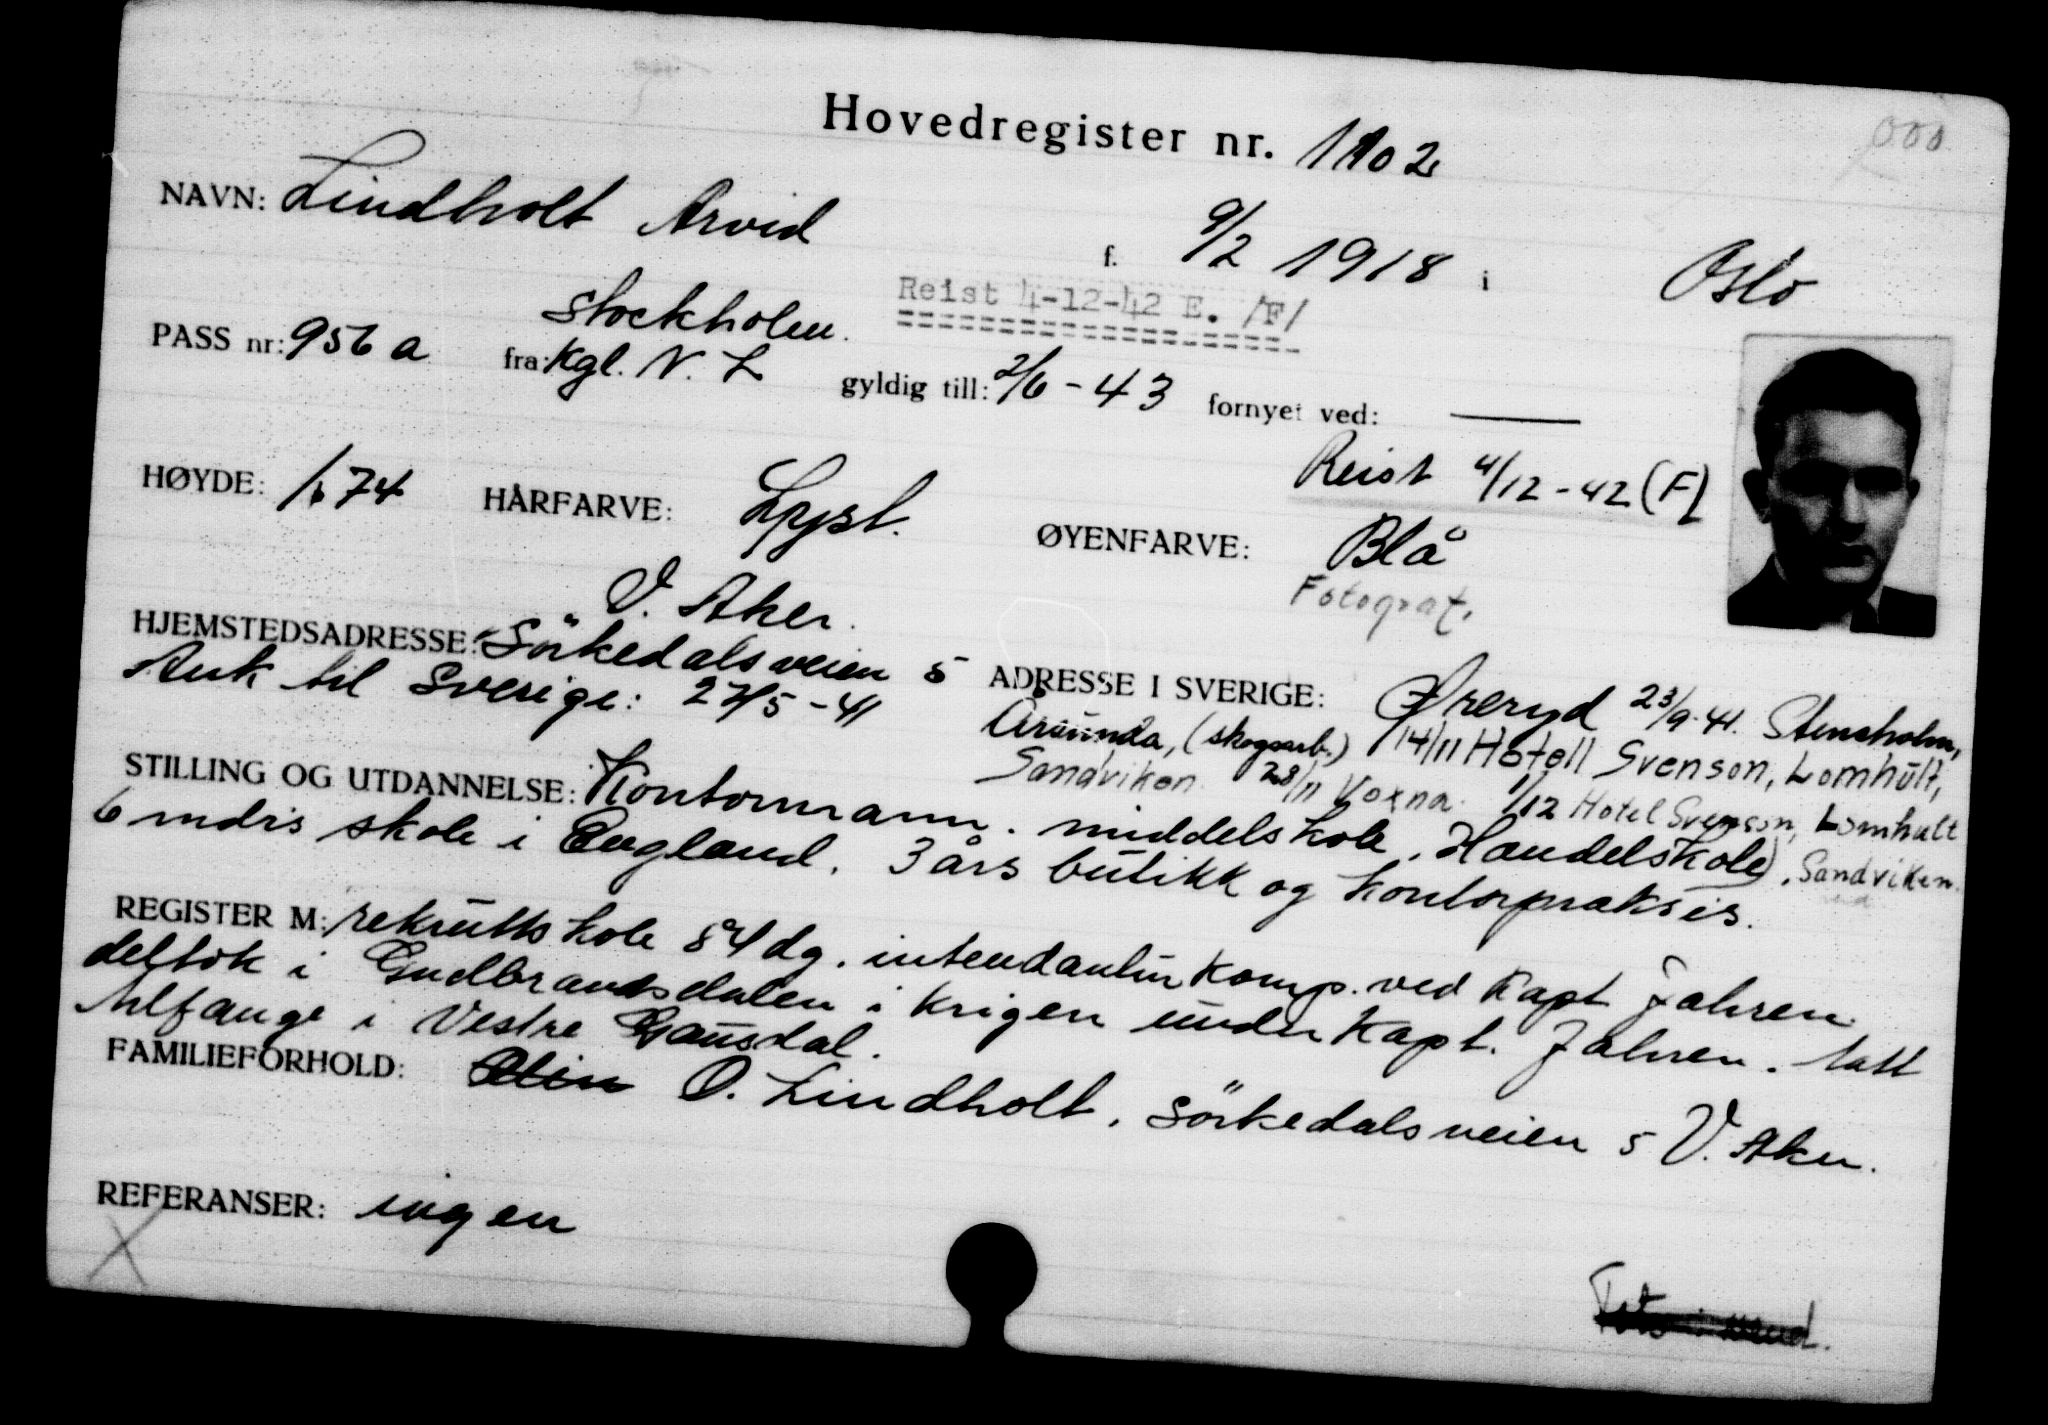 000
Hovedregister nr. 1102
NAVN: Lindholt Arvid f. 9/2 1918 i Oslo
Reist 4-12-42 E. /F/
Stockholm.
PASS nr: 956 a fra: Kgl. N. L gyldig till: 2/6 - 43 fornyet ved: —
Reist 4/12-42 (F)
HØYDE: 1,74 HÅRFARVE: Lyst. ØYENFARVE: Blå
Fotograf.
V. Aker.
HJEMSTEDSADRESSE: Sörkedalsveien 5 ADRESSE I SVERIGE: Øreryd 23/9-41. Stensholm,
Ank til Sverige: 27/5-41 Årsunda, (skogsarb.) 14/11 Hotell Svenson, Lomhult,
Sandviken. 28/11 Voxna. 1/12 Hotel Svenson, Lomhult
Sandviken.
STILLING OG UTDANNELSE: Kontormann. middelskole, Handelskole,
6 mdrs skole i England. 3 års butikk og kontorpraksis.
REGISTER M: rekruttskole 84 dg. intendantur komp. ved Kapt Jahren
deltok i Gudbrandsdalen i krigen under Kapt. Jahren. tatt
tilfange i Vestre Gausdal.
FAMILIEFORHOLD: O. Lindholt, Sörkedalsveien 5 V. Aker.
REFERANSER: ingen